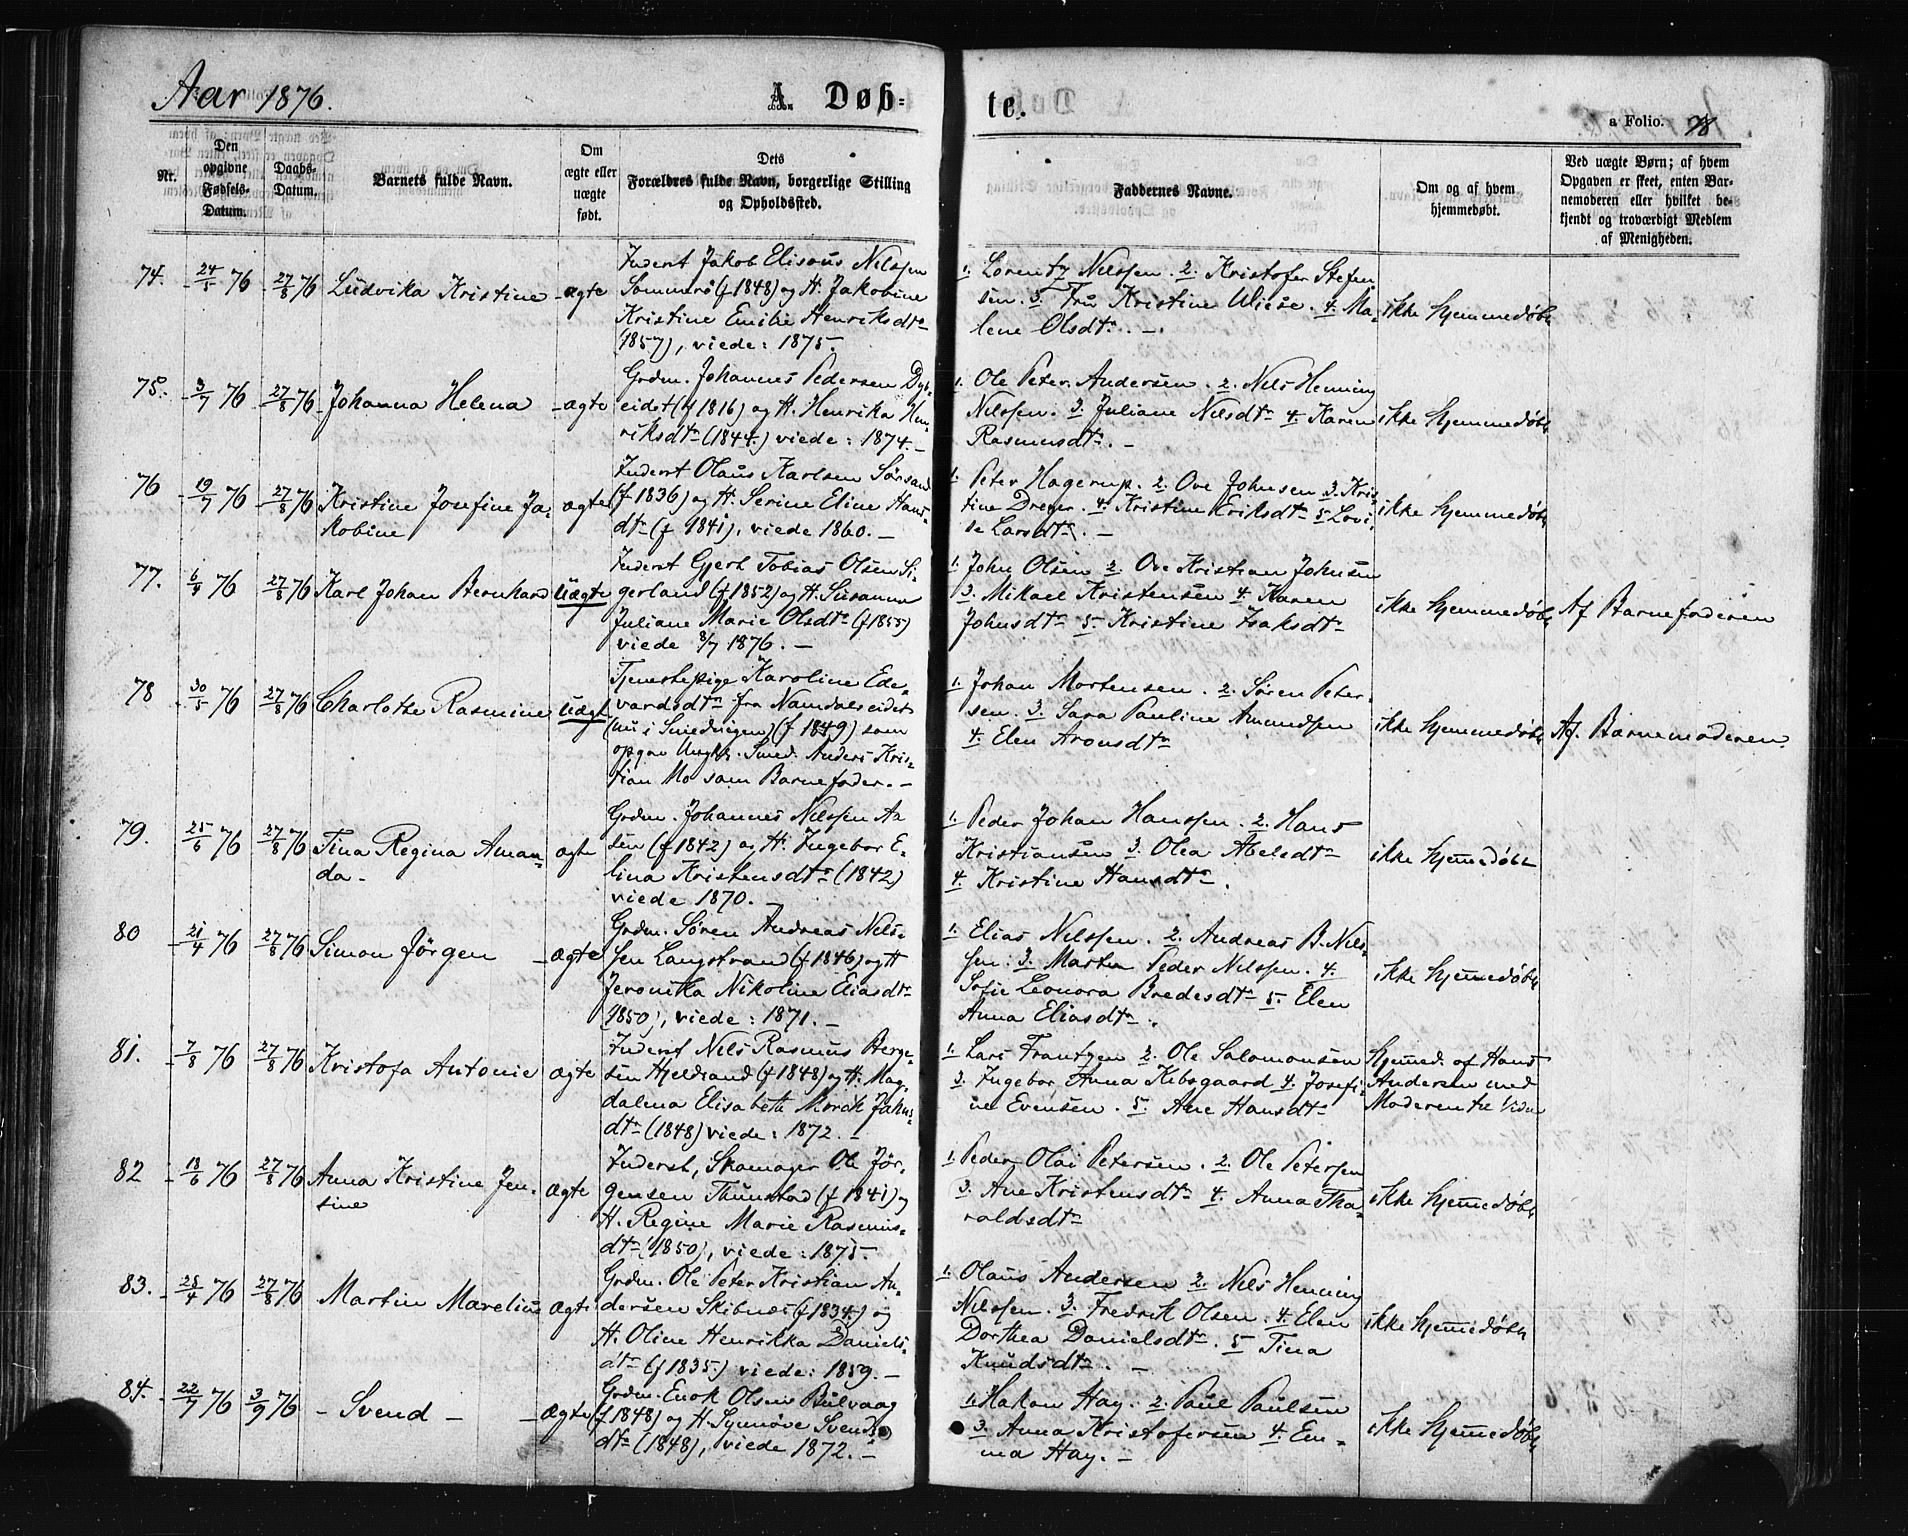 Aar 1876.
A. Døb-
te.
a Folio. 78
Nr.
Den opgivne Fødsels-Datum.
Daabs-Datum.
Barnets fulde Navn.
Om ægte eller uægte født.
Dets Forældres fulde Navn, borgerlige Stilling og Opholdssted.
Faddernes Navne.
Om og af hvem hjemmedøbt.
Ved uægte Børn; af hvem Opgaven er skeet, enten Barnemoderen eller hvilket bekjendt og troværdigt Medlem af Menigheden.
74. 24/5 76 27/8 76 Ludvika Kristine ægte
Inderst Jakob Elisæus Nilssen
Sommerö (f 1848) og H. Jakobine
Kristine Emilie Henriksdtr
(1857), viede: 1875.
1. Lorentz Nilssen. 2. Kristofer Stefen
sen. 3. Fru Kristine Wiese. 4. Ma-
lene Olsdtr. –
ikke hjemmedøbt
75. 3/7 76 27/8 76 Johanna Helena ægte
Grdm. Johannes Pedersen Dyb-
eidet (f 1816) og H. Henrika Hen-
riksdtr (1844) viede: 1874. –
1. Ole Peter Andersen. 2. Nils Henning
Nilssen. 3. Juliane Nilsdtr 4. Karen
Rasmusdtr. –
ikke hjemmedøbt
76 19/7 76 27/8 76 Kristine Josefine Ja-
kobine
ægte
Inderst Olaus Karlsen Sörsand
(f 1836) og H. Serine Eline Hans-
dtr (f 1841), viede 1860. –
1. Peter Hagerup. 2. Ove Johnsen 3. Kris-
tine Dreyer. 4. Kristine Eriksdtr 5. Lovi-
se Larsdtr. –
ikke hjemmedøbt
77. 6/4 76 27/8 76 Karl Johan Bernhard uægte
Inderst Gjert Tobias Olsen Si-
gerland (f 1852) og H. Susanna
Juliane Marie Olsdtr (f 1855)
viede 8/7 1876. –
1. John Olsen 2. Ove Kristian Johnsen
3. Mikael Kristensen 4. Karen
Johnsdtr 5. Kristine Isaksdtr
ikke hjemmedøbt
Af Barnefaderen
78 30/5 76 27/8 76 Charlotte Rasmine uægt
Tjenestepige Karoline Ede-
vardsdtr fra Namdalseidet
(nu i Smedvigen) (f 1849) som
opgav Ungk. Smed. Anders Kris-
tian Mo som Barnefader. –
1. Johan Mortensen. 2. Sören Peter-
sen. 3. Sara Pauline Amundsen
4. Elen Aronsdtr
ikke hjemmedøbt
Af. Barnemoderen.
79. 25/6 76 27/8 76 Tina Regina Aman-
da.
ægte
Grdm. Johannes Nilssen Aa
sen (f 1842) og H. Ingebor E-
lina Kristensdtr (1842)
viede 1870. –
1. Peder Johan Hanssen. 2. Hans
Kristiansen 3. Olea Abelsdtr
4. Kristine Hansdtr.
ikke hjemmedøbt
80 21/4 76 27/8 76 Simon Jörgen ægte
Grdm. Sören Andreas Nils-
sen Langstrand (f 1846) og H
Jeronika Nikoline Eliasdtr
(1850), viede: 1871. –
1. Elias Nilssen. 2. Andreas B. Nils-
sen. 3. Martin Peder Nilssen. 4.
Sofie Leonora Bredesdtr 5. Elen
Anna Eliasdtr.
ikke hjemmedøbt
81. 7/8 76 27/8 76 Kristofa Antonie ægte
Inderst Nils Rasmus Berge-
sen Hjeldsand (f 1848) og H. Mag-
dalena Elisabeth Morch Jakobs
dtr (1848) viede: 1872. –
1. Lars Frantzen 2. Ole Salomonsen
3. Ingebor Anna Kibsgaard 4. Josefi-
ne Evensen. 5. Ane Hansdtr
Hjemmed. af Hans
Andersen med
Moderen til Vidne
82 18/6 76 27/8 76 Anna Kristine Jen-
sine
ægte
Inderst, Skomager Ole Jör-
gensen Thunstad (f 1841) og
H. Regine Marie Rasmus-
dtr (1850), viede: 1875.
1. Peder Olai Petersen. 2. Ole Petersen
3. Ane Kristensdtr 4. Anna Tha-
raldsdtr
ikke hjemmedøbt
83. 28/4 76 27/8 76 Martin Marelius ægte
Grdm. Ole Peter Kristian An-
dersen Skibnæs (f 1834) og
H. Oline Henrikka Daniels-
dtr (f 1835) viede: 1859. –
1. Olaus Andersen 2. Nils Henning
Nilssen. 3. Fredrik Olsen. 4. Elen
Dorthea Danielsdtr. 5. Tina
Knudsdtr. –
ikke hjemmedøbt
84. 22/7 76 3/9 76 – Svend – ægte
Grdm. Enok Olsen Bulvaag
(f 1848) og H. Synnöve Svends
dtr (1848), viede 1872. –
1. Hakon Hay. 2. Paul Paulsen
3. Anna Kristofersen 4. Em-
ma Hay. –
ikke hjemmedøbt